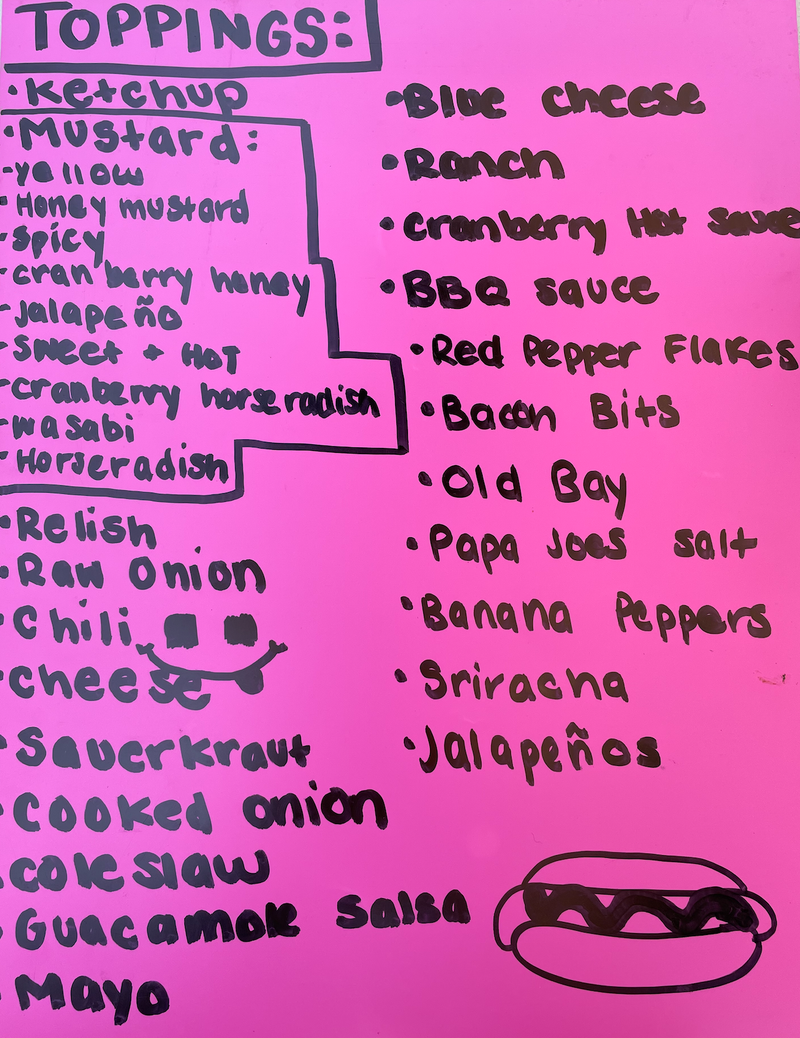 TOPPINGS:
• Ketchup
• Mustard:
- yellow
- Honey mustard
- spicy
- cranberry honey
- Jalapeño
- Sweet + HOT
- cranberry horseradish
- wasabi
- Horseradish
• Relish
• Raw Onion
• Chili
• cheese
• Sauerkraut
• Cooked onion
• coleslaw
• Guacamole salsa
• Mayo
• Blue cheese
• Ranch
• cranberry Hot sauce
• BBQ sauce
• Red Pepper Flakes
• Bacon Bits
• Old Bay
• Papa Joes salt
• Banana Peppers
• Sriracha
• Jalapeños